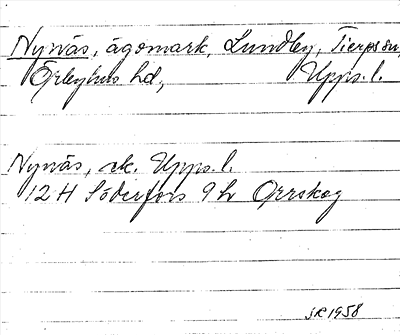 Nynäs, ägomark, Lundby, Tierps sn,
Örbyhus hd, Upps.l.
Nynäs, ek. Upps.l.
12 H Söderfors 9 h Orrskog
JK 1958